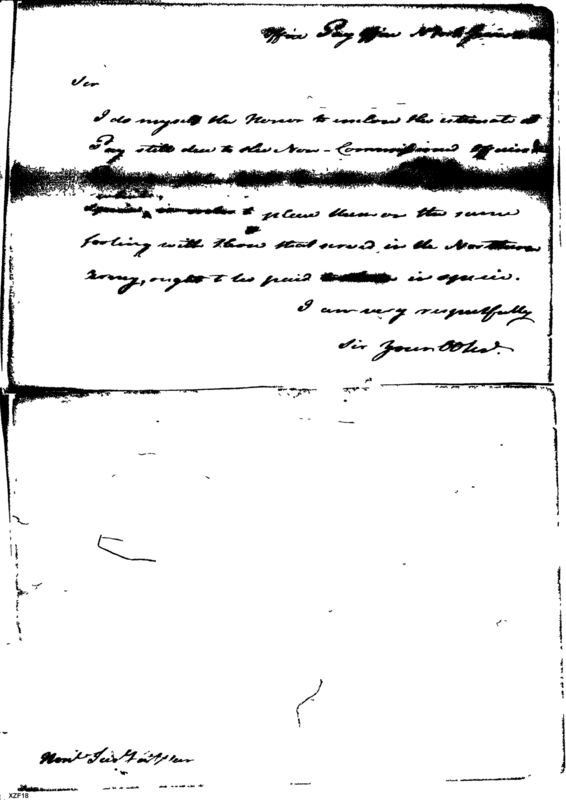 Office Pay Office
Sir
I do myself the Honor to inclose the estimate of
Pay still due to the Non-Commissioned Officers
to place them on the same
footing with those that served in the Northern
Army, ought to be paid in specie.
I am very respectfully
Sir Your Obed.
XZF18